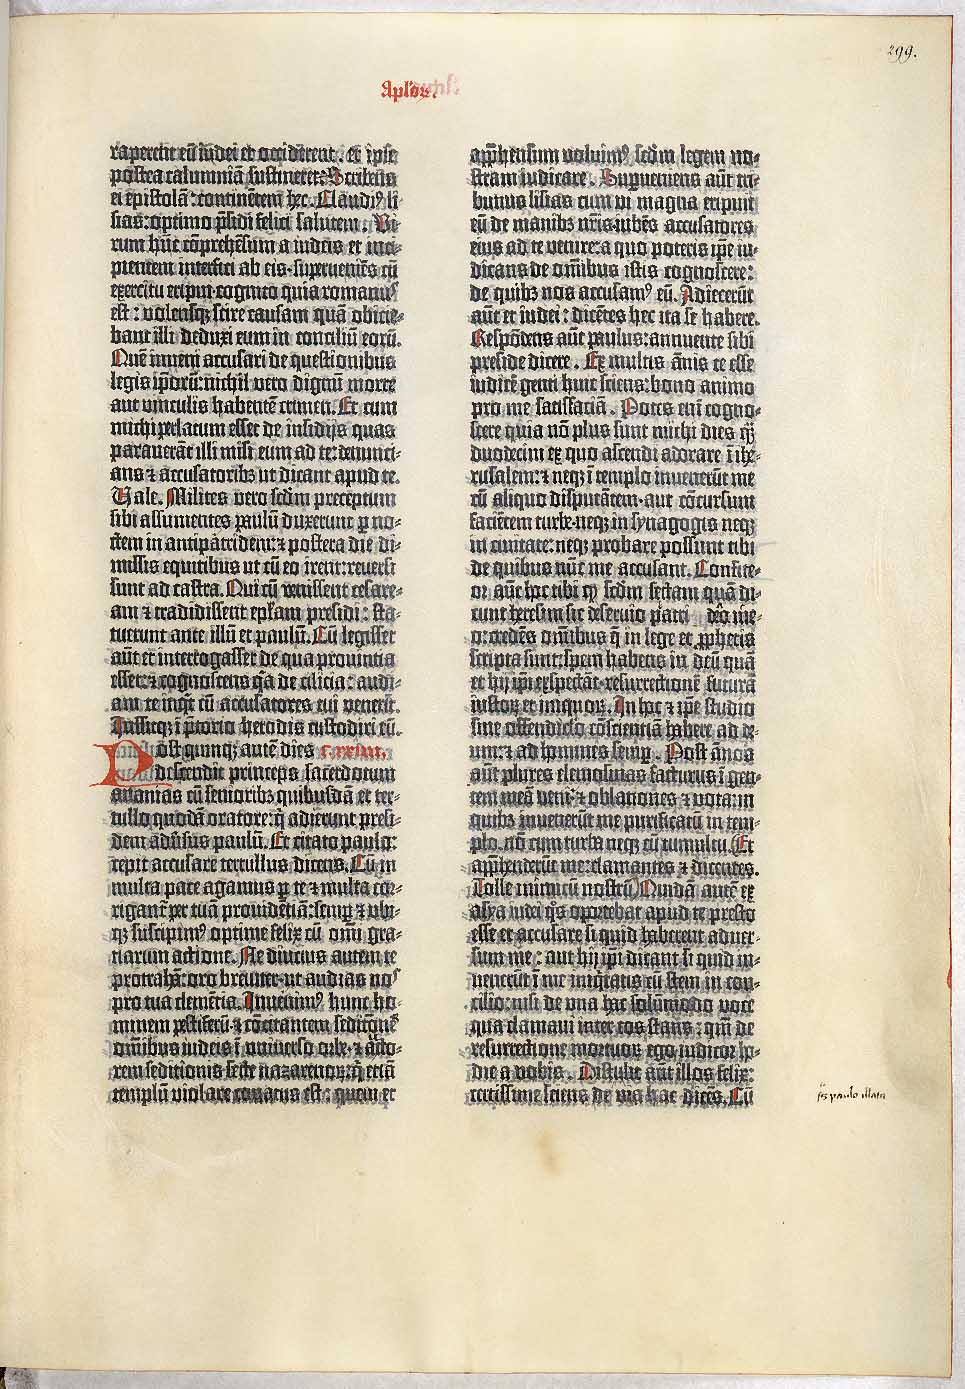 299.
Aplōꝝ.
raperent eū iudei et occiderent. et ipse
postea calumniā sustineret: Scribens
ei epistolā: continentem hec. Claudiꝰ li-
sias: optimo p̄sidi felici salutem. Vi-
rum hūc cōprehēsum a iudeis et inci-
pientem interfici ab eis. supervenies cū
exercitu eripui. cognito quia romanuꝰ
est: volensqꝫ scire causam quā obicie-
bant illi deduxi eum in concilium eorū.
Quē inveni accusari de questionibus
legis ip̄orū: nichil vero dignū morte
aut vinculis habentē crimen. Et cum
michi perlatum esset de insidijs quas
paraverāt illi misi eum ad te: denunci-
ans ⁊ accusatoribꝫ ut dicant apud te.
Vale. Milites vero scd̄m preceptum
sibi assumentes paulū duxerunt ꝑ no-
ctem in antipatridem: ⁊ postera die di-
missis equitibus ut cū eo irent: reversi
sunt ad castra. Qui cū venissent cesare-
am ⁊ tradidissent epl̄am presidi: sta-
tuerunt ante illū et paulū. Cū legisset
aūt et interrogasset de qua provincia
esset: ⁊ cognoscens q̄a de cilicia: audi-
am te inq̄t cū accusatores tui venerīt.
Jussitqꝫ ī p̄torio herodis custodiri eū.
Post quinqꝫ autē dies c. xxiiii.
descendit princeps sacerdotum
ananias cū senioribꝫ quibusdā et ter-
tullo quodā oratore: q̄ adierunt presi-
dem adv̄sus paulū. Et citato paulo:
cepit accusare tertullus dicens. Cū in
multa pace agamus ꝑ te ⁊ multa cor-
rigant̄ per tuā providētiā: semꝑ ⁊ ubi-
qꝫ suscipimꝰ optime felix cū omī gra-
tiarum actione. Ne diucius autem te
protrahā: oro breviter ut audias noꝰ
pro tua clemētia. Invenimꝰ hunc ho-
minem pestiferū ⁊ cōcitantem seditōnes
omībus iudeis ī universo orbe. ⁊ aucto-
rem seditionis secte nazarenoꝝ: q̄ etiā
templū violare conatus est: quem et
app̄hensum voluimꝰ scd̄m legem no-
stram iudicare. Superveniens aūt tri-
bunus lisias cum vi magna eripuit
eū de manibꝫ nr̄is. iubēs accusatores
eius ad te venire: a quo poteris ip̄e iu-
dicans de omībus istis cognoscere:
de quibꝫ nos accusamꝰ eū. Adiecerūt
aūt et iudei: dicētes hec ita se habere.
Respōdens aūt paulus: annuente sibi
preside dicere. Ex multis ānis te esse
iudicē genti huic sciens: bono animo
pro me satisfaciā. Potes enī cogno-
scere quia nō plus sunt michi dies q̄ꝫ
duodecim ex quo ascendi adorare ī ihe-
rusalem: ⁊ neqꝫ ī templo invenerūt me
cū aliquo disputātem. aut cōcursum
faciētem turbe. neqꝫ in synagogis neqꝫ
in civitate: neqꝫ probare possunt tibi
de quibus nūc me accusant. Confite-
or aūt hoc tibi qꝫ scd̄m sectam quā di-
cunt heresim sic deservio patri deo me-
o: credēs omībus q̄ in lege et ꝓphetis
scripta sunt: spem habens in deū quā
et hij ip̄i exspectāt. resurrectionē futurā
iustoꝝ et iniquoꝝ. In hoc ⁊ ip̄e studio
sine offendiclo cōscienciā habere ad de-
um: ⁊ ad homines semꝑ. Post ānos
aūt plures elemosinas facturus ī gen-
tem meā veni: ⁊ oblationes ⁊ vota: in
quibꝫ invenerūt me purificatū in tem-
plo. nō cum turba neqꝫ cū tumultu. Et
app̄henderūt me: clamantes ⁊ dicentes.
Tolle inimicū nostrū. Quidā autē ex
asya iudei q̄s oportebat apud te presto
esse et accusare si quid haberent adver-
sum me: aut hij ip̄i dicant si quid in-
venerūt ī me iniq̄tatis cū stem in con-
cilio: nisi de una hac solūmodo voce
qua clamavi inter eos stans: qm̄ de
resurrectione mortuoꝝ ego iudicor ho-
die a vobis. Distulit aūt illos felix:
certissime sciens de via hac dicēs. Cū
paulo illata